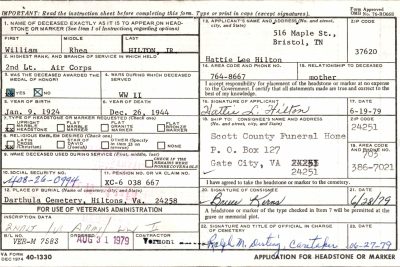 IMPORTANT: Read the instruction sheet before completing this form. Type or print in caps (except signatures).
Form Approved
OMB No. 76-R0668
1. NAME OF DECEASED EXACTLY AS IT IS TO APPEAR ON HEADSTONE OR MARKER (See Item 1 of Instructions regarding options)
FIRST
MIDDLE
LAST
William Rhea HILTON, JR
2. HIGHEST RANK, AND BRANCH OF SERVICE IN WHICH HELD
2nd Lt. Air Corps
3. WAS THE DECEASED AWARDED THE MEDAL OF HONOR?
YES NO
4. WARS DURING WHICH DECEASED SERVED
WW II
5. YEAR OF BIRTH
Jan. 9, 1924
6. YEAR OF DEATH
Dec. 29, 1944
7. TYPE OF HEADSTONE OR MARKER REQUESTED (Check)
UPRIGHT MARBLE
FLAT MARBLE
FLAT GRANITE
FLAT BRONZE
8. RELIGIOUS EMBLEM, IF DESIRED (Check one)
LATIN CROSS
STAR OF DAVID
9. NAME DECEASED USED DURING SERVICE (First, middle, last)
CHECK IF THE REMAINS WERE NONRECOVERABLE
10. SOCIAL SECURITY NO.
408-26-0994
11. PENSION NO. OR VA CLAIM NO.
XC-6 038 667
12. PLACE OF BURIAL (Name of cemetery, city and state)
Darthula Cemetery, Hiltons, Va. 24258
FOR USE OF VETERANS ADMINISTRATION
INSCRIPTION DATA
B/L NO.
VER-M 7583
ORDERED
AUG 31 1979
CONTRACTOR
Vermont
VA FORM
DEC 1974
40-1330
13. APPLICANT'S NAME AND ADDRESS (No. and street, city, state)
516 Maple St.,
Bristol, TN
37620
Hattie Lee Hilton
14. AREA CODE AND PHONE NO.
764-8667
15. RELATIONSHIP TO DECEASED
mother
I accept responsibility for placement of the headstone or marker at no expense to the Government. I certify that all statements made are true and correct to the best of my knowledge.
16. SIGNATURE OF APPLICANT
Hattie L. Hilton
17. DATE
6-19-79
18. SHIP TO: CONSIGNEE'S NAME AND ADDRESS (No. and street, city, and state)
ZIP CODE
24251
Scott County Funeral Home
P. O. Box 127
Gate City, VA 24251
24251
19. AREA CODE AND PHONE NO.
703
386-7021
I have agreed to take the headstone or marker to the cemetery.
20. SIGNATURE OF CONSIGNEE
Bruce Kerns
21. DATE
6/28/79
A headstone or marker of the type checked in Item 7 will be permitted at the grave or memorial plot.
22. SIGNATURE AND TITLE OF OFFICIAL IN CHARGE OF CEMETERY
Caretaker
23. DATE
06-27-79
APPLICATION FOR HEADSTONE OR MARKER